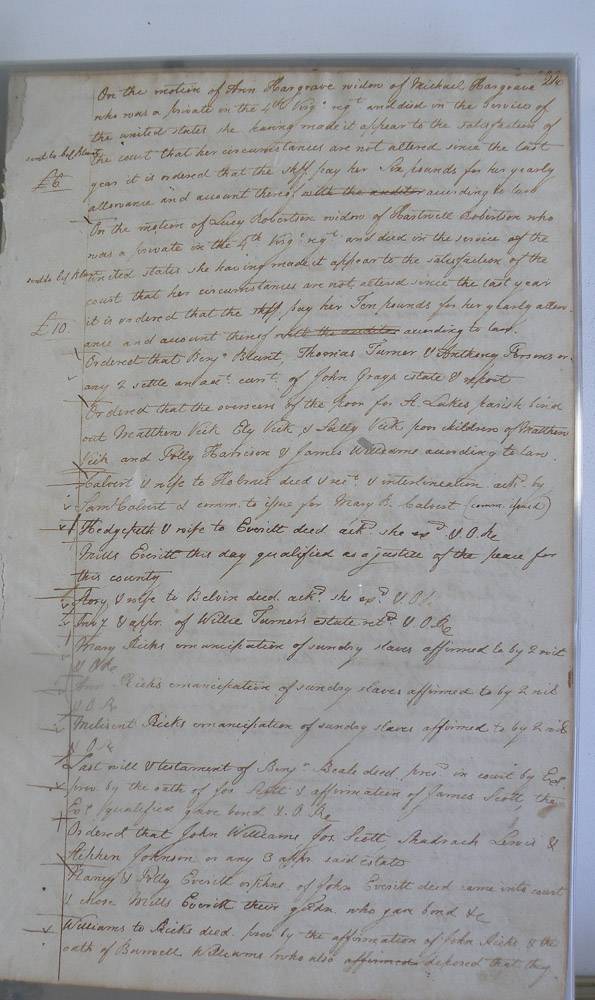 On the motion of Ann Hargrave widow of Michael Hargrave
who was a private in the 4th Virga regt and died in the service of
the united states she having made it appear to the satisfaction of
the court that her circumstances are not altered since the last
£6
year it is ordered that the shff pay her Six pounds for her yearly
allowance and account thereof with the auditor according to law
On the motion of Lucy Robertson widow of Hartwell Robertson who
was a private in the 4th Virga regt and died in the service of the
united states she having made it appear to the satisfaction of the
court that her circumstances are not altered since the last year
£10
it is ordered that the shff pay her Ten pounds for her yearly allow-
ance and account thereof with the auditor according to law.
Ordered that Benjn Blunt, Thomas Turner & Anthony Persons or
any 2 settle an acct currt of John Grays estate & report
Ordered that the overseers of the poor for St Lukes parish bind
out Matthew Vick Ely Vick & Sally Vick poor children of Matthew
Vick and Polly Harrison & James Williams according to law.
Calvert & wife to Holmes deed & rect & interlineation ackd by
Saml Calvert & comm. to issue for Mary B. Calvert (comm. issued)
Hedgepeth & wife to Everitt deed ackd she exd & O. Re
Mills Everitt this day qualified as a justice of the peace for
this county
Rory & wife to Belvin deed ackd she exd & O.
Invy & appr. of Willie Turners estate retd & O. Re
Mary Ricks emancipation of sundry slaves affirmed to by 2 wit
& O Re
Ann Ricks emancipation of sundry slaves affirmed to by 2 wit
& O Re
Milisent Ricks emancipation of sundry slaves affirmed to by 2 wits
& O Re
Last will & testament of Benjn Beale deed presd in court by Exr
prov by the oath of Jos Scott & affirmation of James Scott, the
Exr qualified gave bond & O. Re
Ordered that John Williams Jos Scott, Shadrach Lewis &
Stephen Johnson or any 3 appr said estate
Nancy & Polly Everitt orphns of John Everitt deed came into court
& chose Mills Everitt their guidn who gave bond &c
Williams to Ricks deed prov by the affirmation of John Ricks & the
oath of Burwell Williams who also affirmed deposed that they